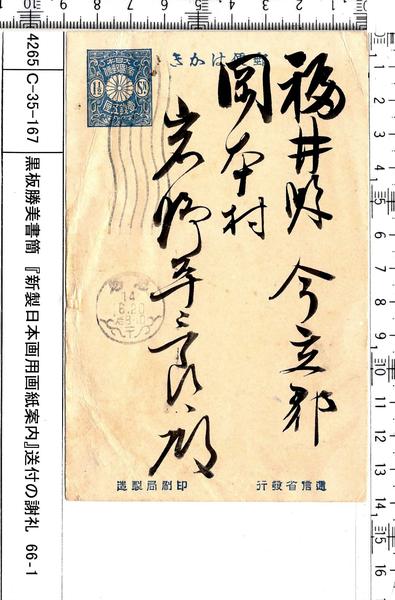 4265 C-35-167 黒板勝美書簡 『新製日本画用画紙案内』送付の謝礼 66-1
郵便はかき
1½ SN
福井縣 今立郡
岡本村
岩野平三郎殿
14
6.20
逓信省發行
印刷局製造